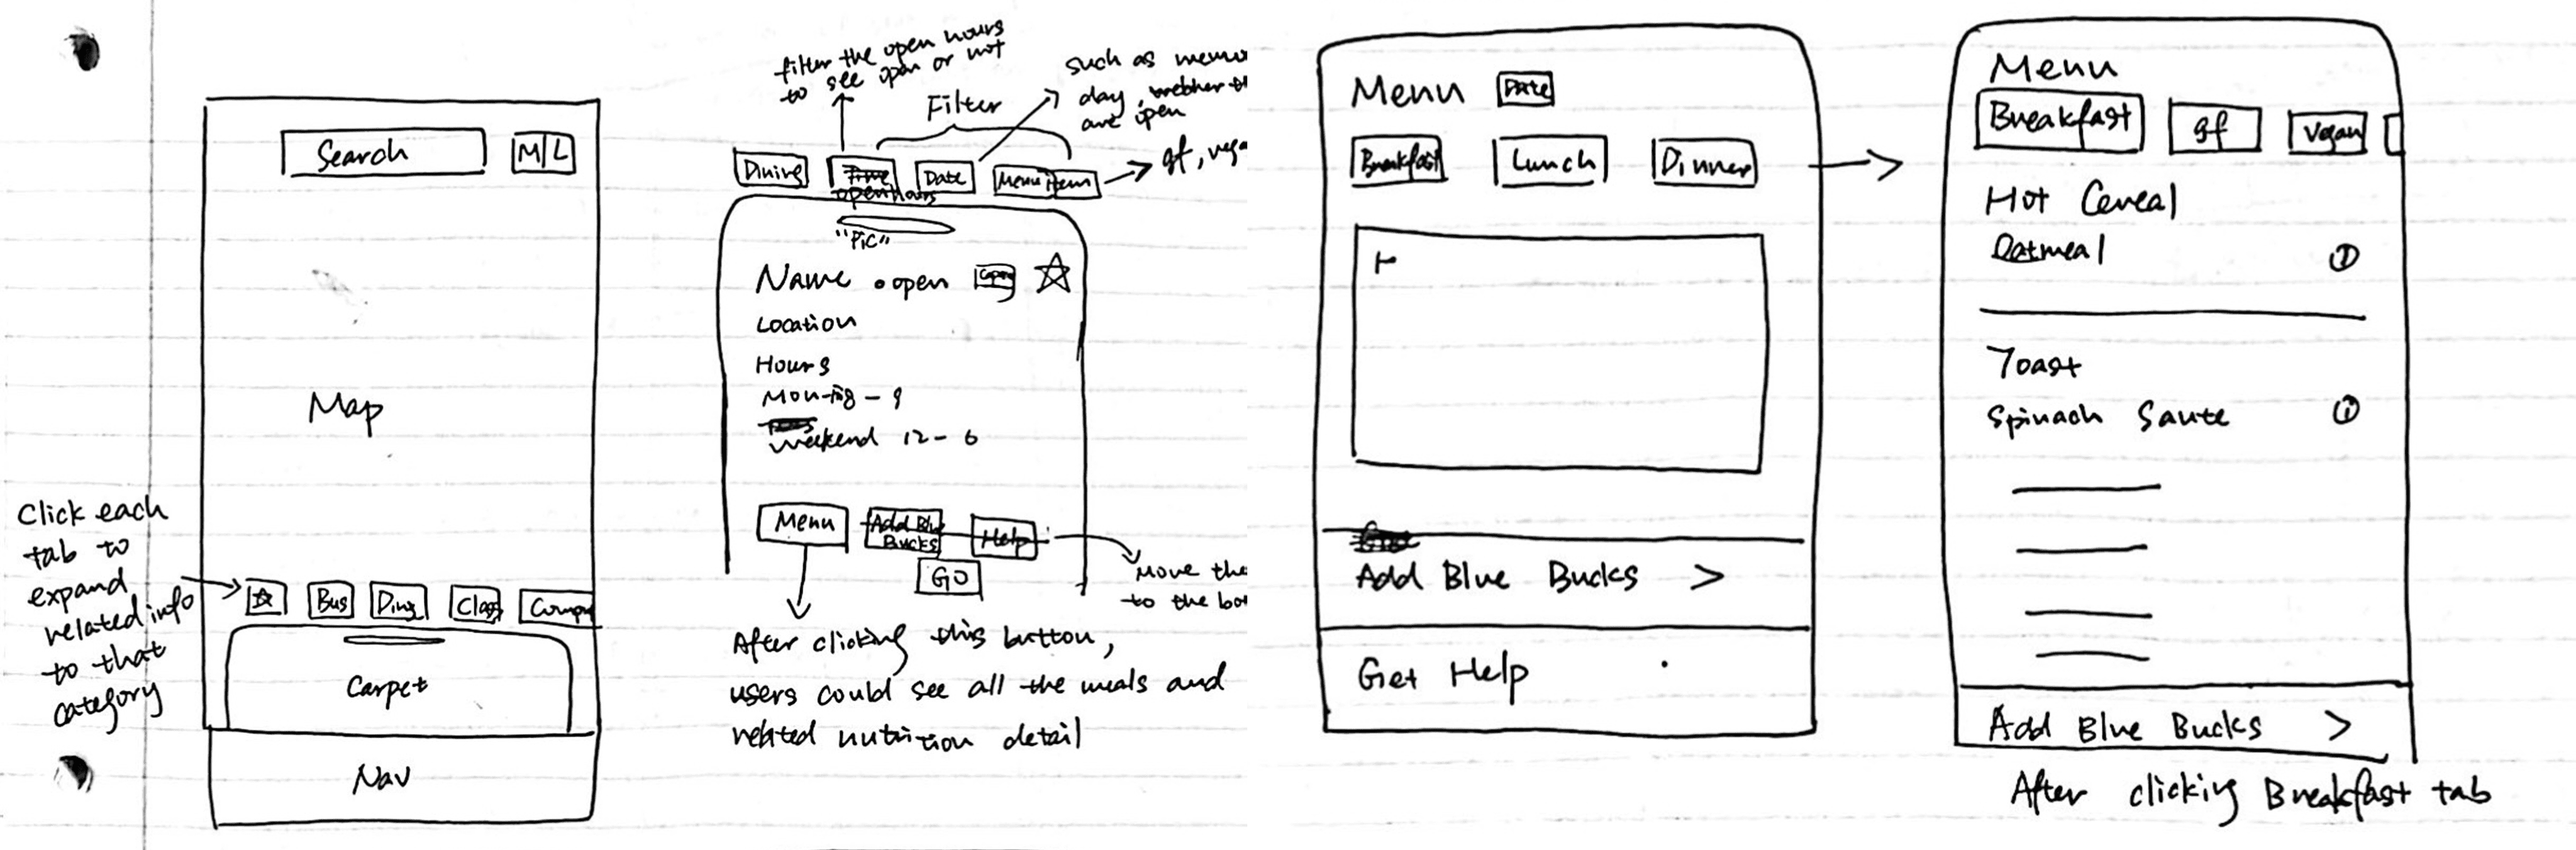 Search
M|L
Map
Click each
tab to
expand
related info
to that
category
Bus
Class
Carpet
Nav
filter the open hours
to see open or not
Filter
such as
day,
are open
gf,
Dining
Time
open hours
Date
Menu item
"Pic"
Name • open
Location
Hours
weekend 12 - 6
Menu
Add Blue
Bucks
Help
GO
Move
to the
After clicking this button,
users could see all the meals and
related nutrition detail
Menu Date
Breakfast Lunch Dinner
Add Blue Bucks >
Get Help
Menu
Breakfast gf Vegan
Hot Cereal
Oatmeal
Toast
Spinach Saute
Add Blue Bucks >
After clicking Breakfast tab